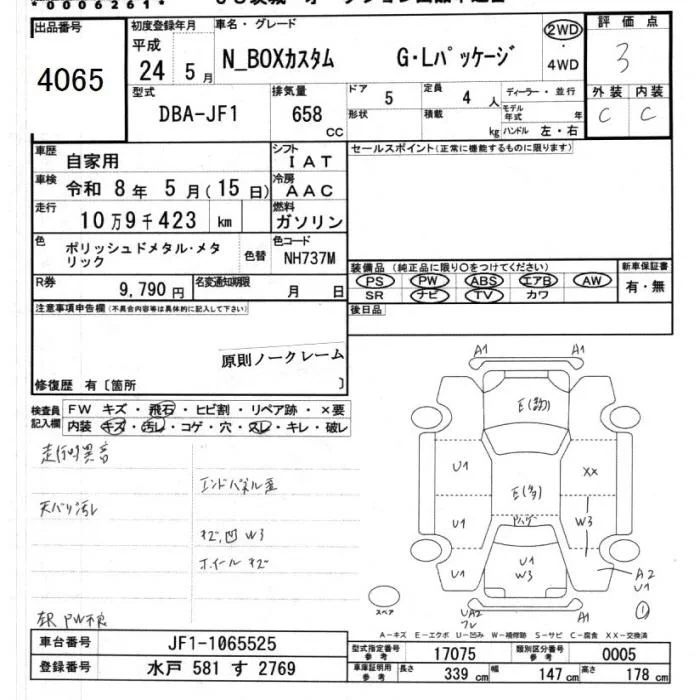 *0006261*
出品番号 4065
初度登録年月 平成 24年 5月
車名・グレード N_BOXカスタム G・Lパッケージ
2WD・4WD
評価点 3
外装 C 内装 C
型式 DBA-JF1
排気量 658 CC
ドア 5 定員 4人 ディーラー・並行
形状 積載 kg モデル年式 年 ハンドル 左・右
車歴 自家用
シフト IAT
セールスポイント(正常に機能するものに限ります)
車検 令和 8年 5月(15日)
冷房 AAC
走行 10万9千423 km
燃料 ガソリン
色 ポリッシュドメタル・メタリック
色替
色コード NH737M
装備品 (純正品に限り○をつけてください)
新車保証書 有・無
PS PW ABS エアB AW
SR ナビ TV カワ
R券 9,790円
名変通知期限 月 日
後日品
注意事項申告欄(不具合内容等は具体的に記入して下さい)
原則ノークレーム
修復歴 有〔箇所 〕
検査員記入欄
FW キズ・飛石・ヒビ割・リペア跡・×要
内装 キズ・汚レ・コゲ・穴・スレ・キレ・破レ
走行時異音
エンドパネル歪
天バリ汚レ
ルーフ凹 W3
ホイールキズ
PW不良
A1 A1
E(多)
U1 XX
U1 W3
U1 U1 W3 A2 U1
A1
UA2
スペア
A-キズ E-エクボ U-凹み W-補修跡 S-サビ C-腐食 XX-交換済
車台番号 JF1-1065525
登録番号 水戸 581 す 2769
型式指定番号 参考 17075
類別区分番号 参考 0005
車庫証明用 参考 長さ 339 cm 幅 147 cm 高さ 178 cm